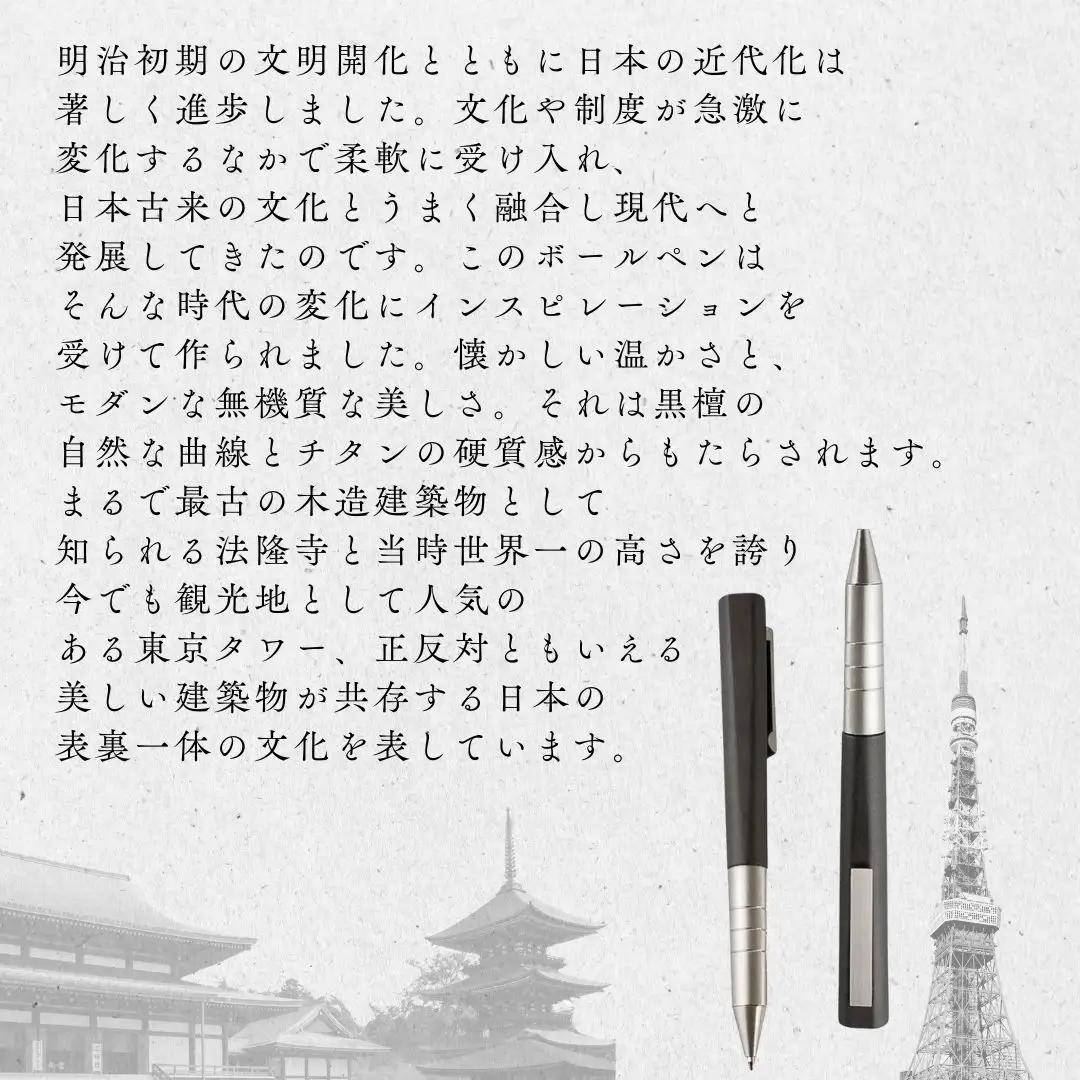 明治初期の文明開化とともに日本の近代化は
著しく進歩しました。文化や制度が急激に
変化するなかで柔軟に受け入れ、
日本古来の文化とうまく融合し現代へと
発展してきたのです。このボールペンは
そんな時代の変化にインスピレーションを
受けて作られました。懐かしい温かさと、
モダンな無機質な美しさ。それは黒檀の
自然な曲線とチタンの硬質感からもたらされます。
まるで最古の木造建築物として
知られる法隆寺と当時世界一の高さを誇り
今でも観光地として人気の
ある東京タワー、正反対ともいえる
美しい建築物が共存する日本の
表裏一体の文化を表しています。